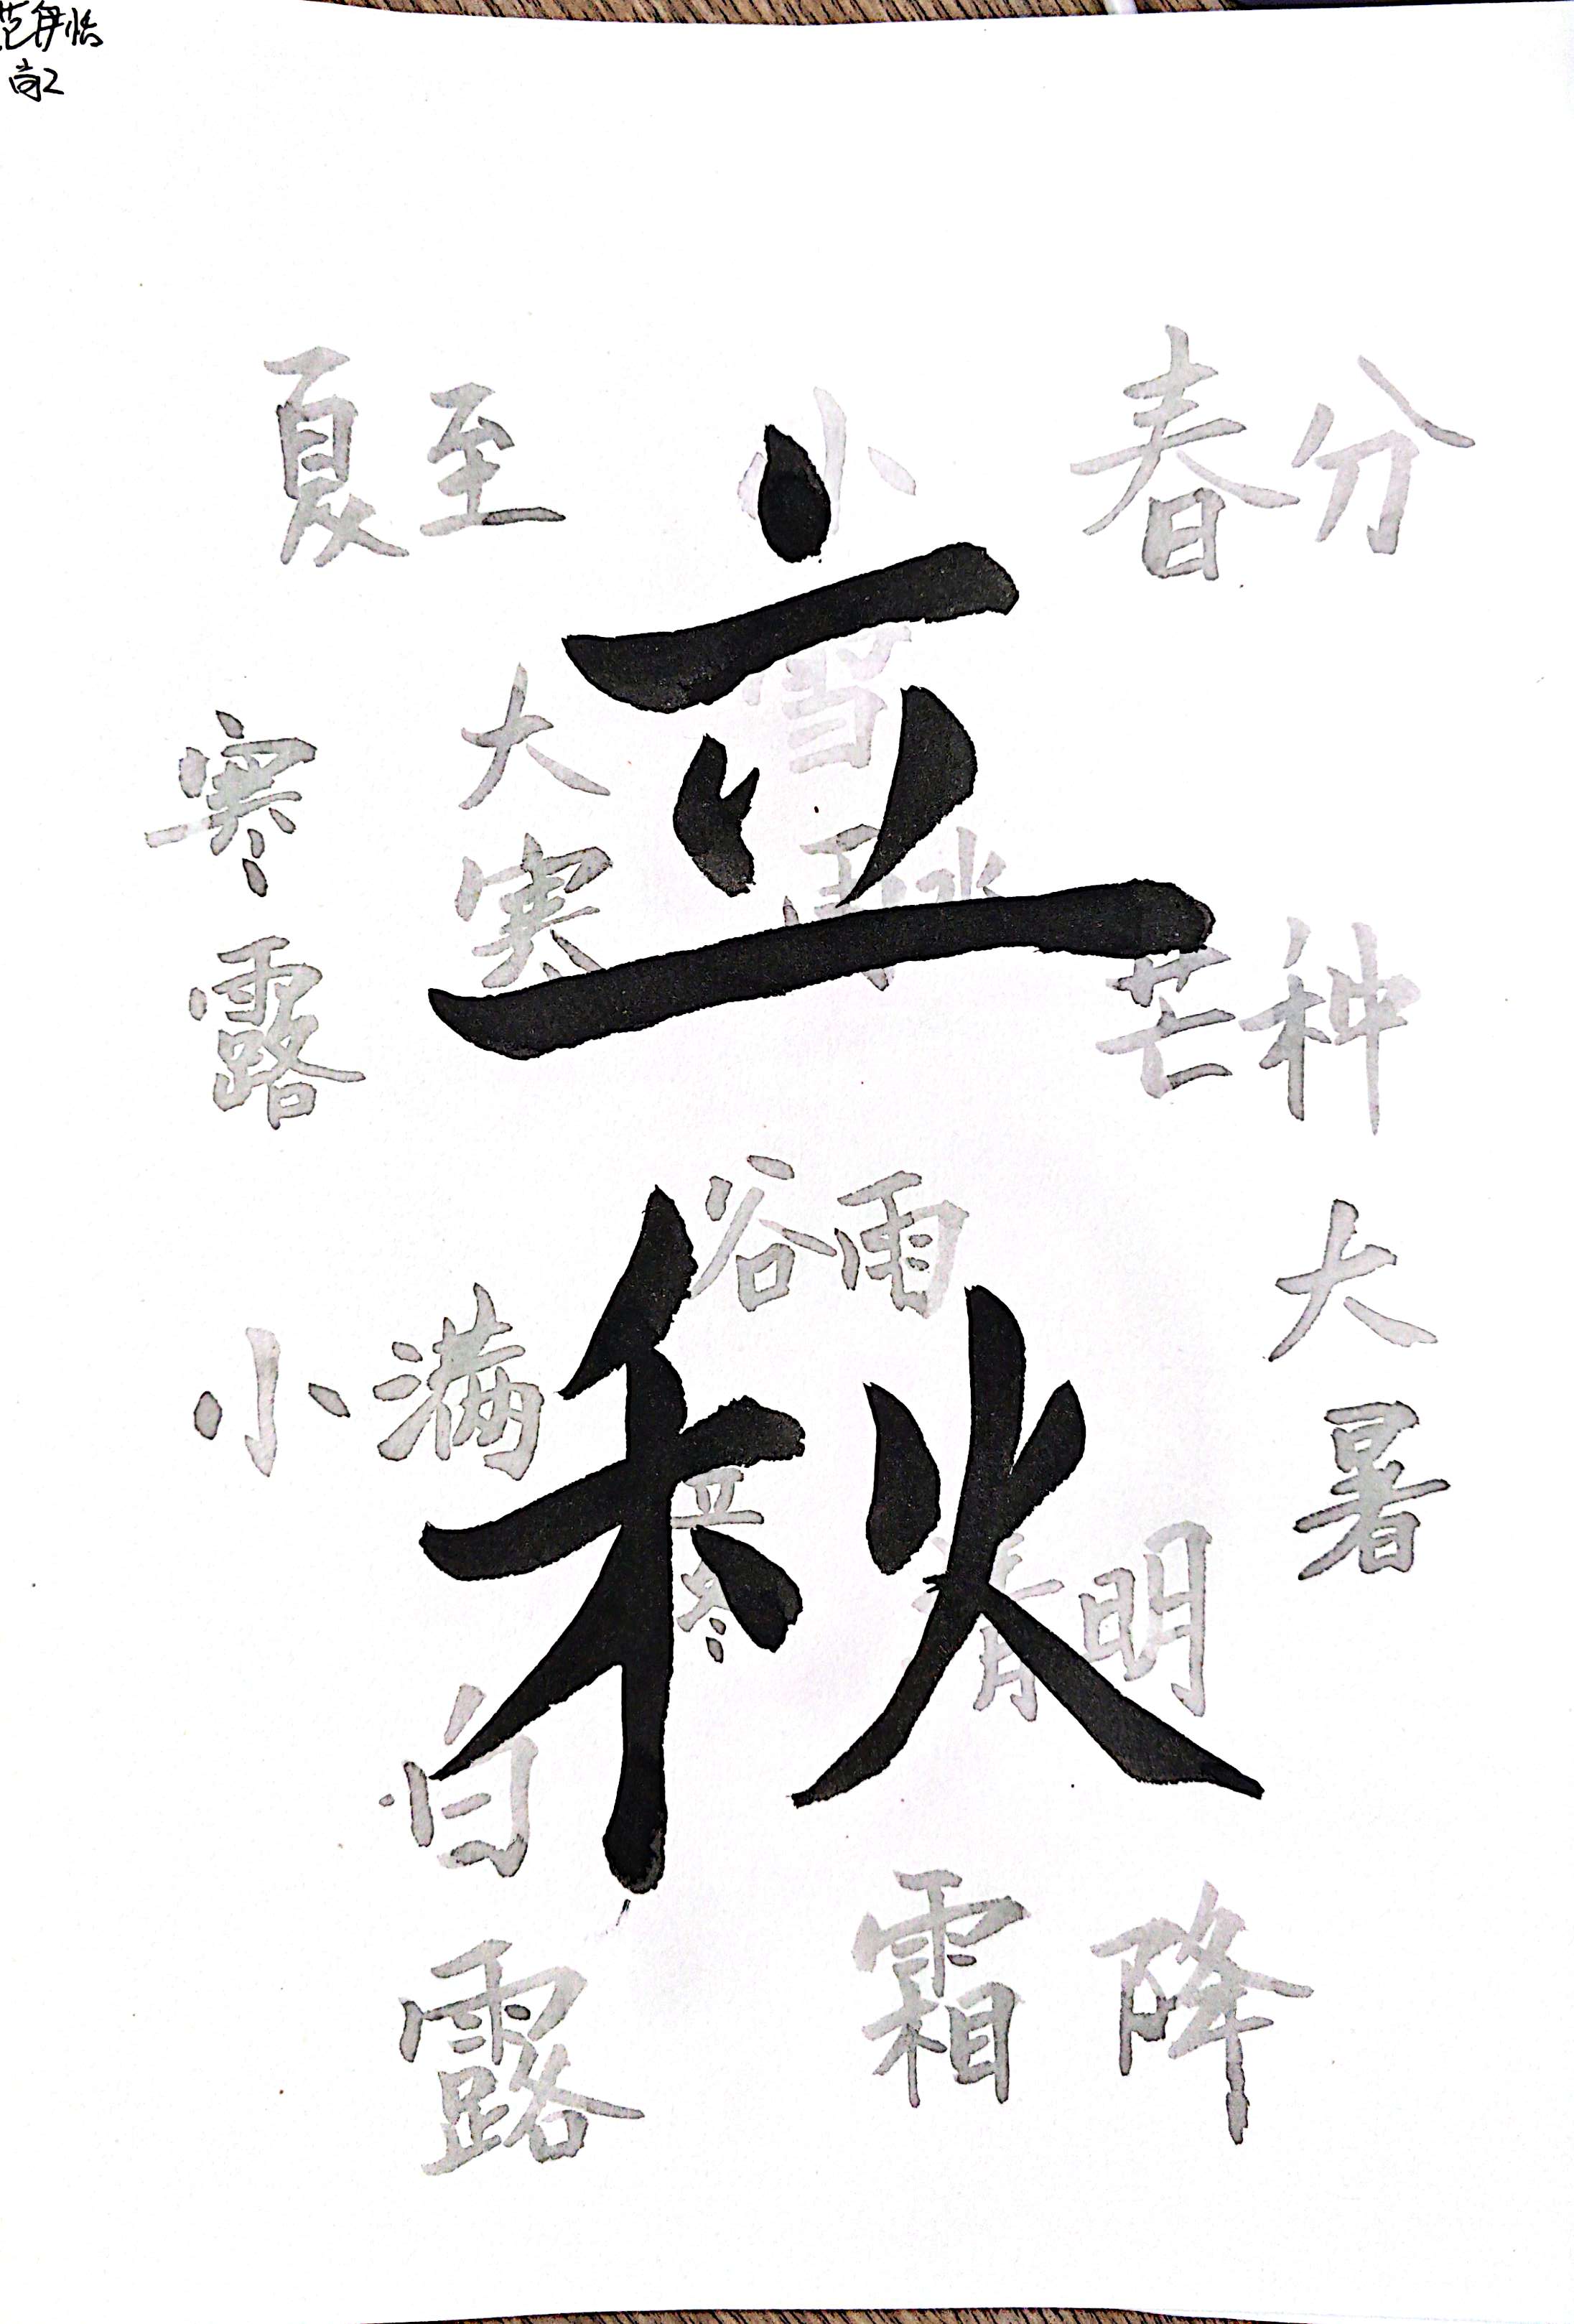 范伊怡
夏至
小雪
春分
立秋
寒露
大寒
雨水
芒种
谷雨
大暑
小满
立冬
清明
白露
霜降